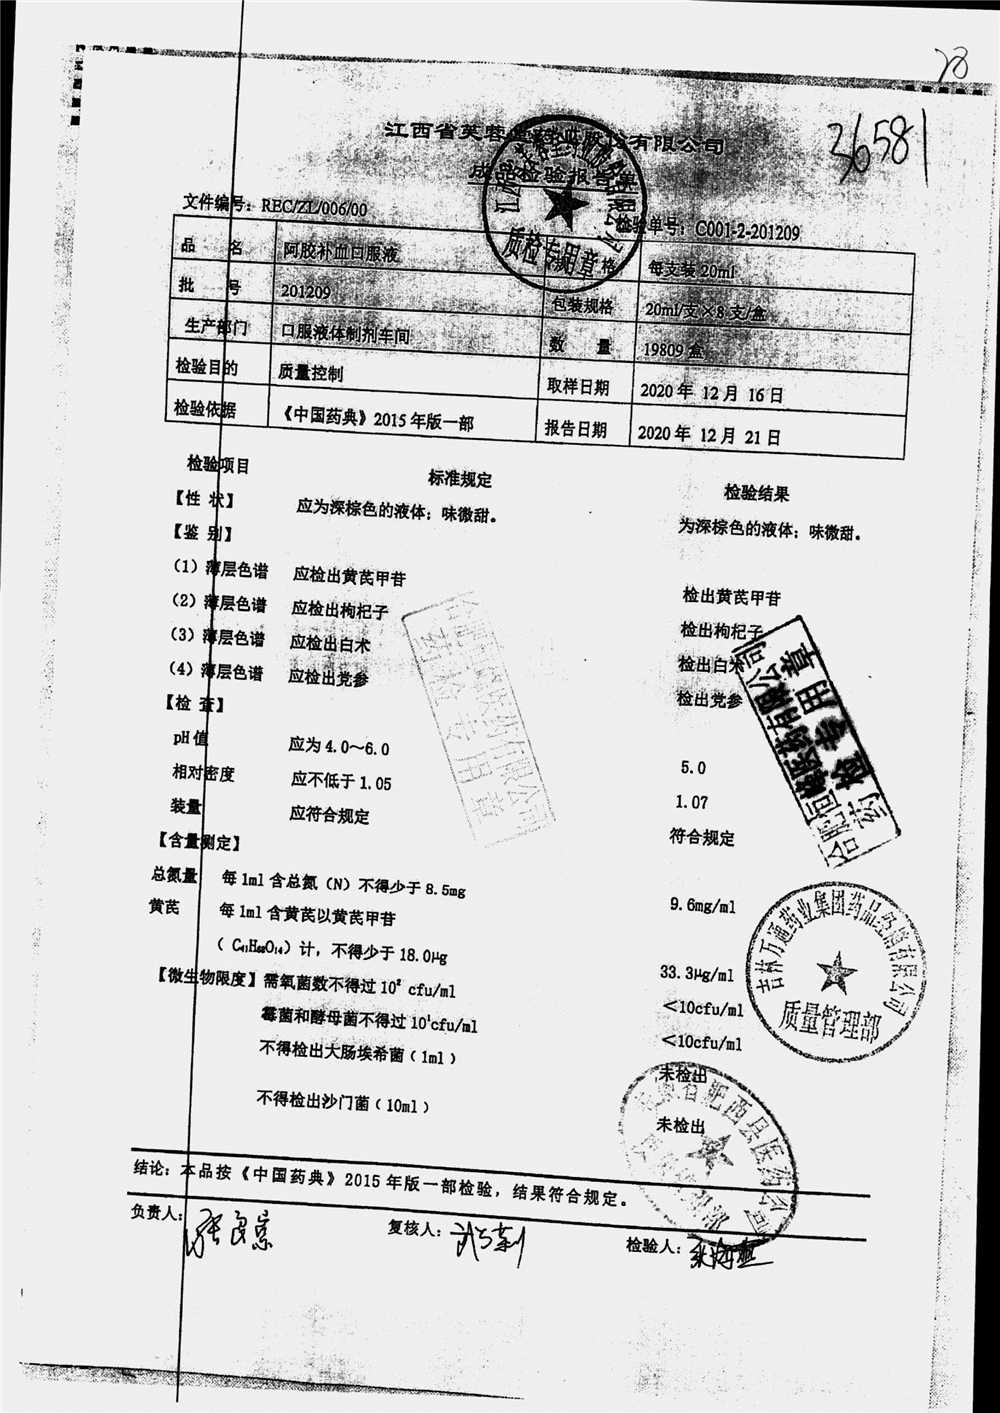 28
36581
江西省芙蓉堂药业股份有限公司
成品检验报告书
文件编号：REC/ZL/006/00 检验单号：C001-2-201209
品 名 阿胶补血口服液 格 每支装20ml
批 号 201209 包装规格 20ml/支×8支/盒
生产部门 口服液体制剂车间 数 量 19809盒
检验目的 质量控制 取样日期 2020年 12月 16日
检验依据 《中国药典》2015年版一部 报告日期 2020年 12月 21日
检验项目 标准规定 检验结果
【性 状】 应为深棕色的液体；味微甜。 为深棕色的液体；味微甜。
【鉴 别】
（1）薄层色谱 应检出黄芪甲苷 检出黄芪甲苷
（2）薄层色谱 应检出枸杞子 检出枸杞子
（3）薄层色谱 应检出白术 检出白术
（4）薄层色谱 应检出党参 检出党参
【检 查】
pH值 应为4.0～6.0 5.0
相对密度 应不低于1.05 1.07
装量 应符合规定 符合规定
【含量测定】
总氮量 每1ml含总氮（N）不得少于8.5mg 9.6mg/ml
黄芪 每1ml含黄芪以黄芪甲苷
（C₄₁H₆₈O₁₄）计，不得少于18.0μg 33.3μg/ml
【微生物限度】需氧菌数不得过10² cfu/ml <10cfu/ml
霉菌和酵母菌不得过10¹cfu/ml <10cfu/ml
不得检出大肠埃希菌（1ml） 未检出
不得检出沙门菌（10ml） 未检出
结论：本品按《中国药典》2015年版一部检验，结果符合规定。
负责人： 复核人： 检验人：
质检专用章
药检专用章
合肥恒瑞医药有限公司
药检专用章
吉林万通药业集团药品经销有限公司
质量管理部
安徽省肥西县医药公司